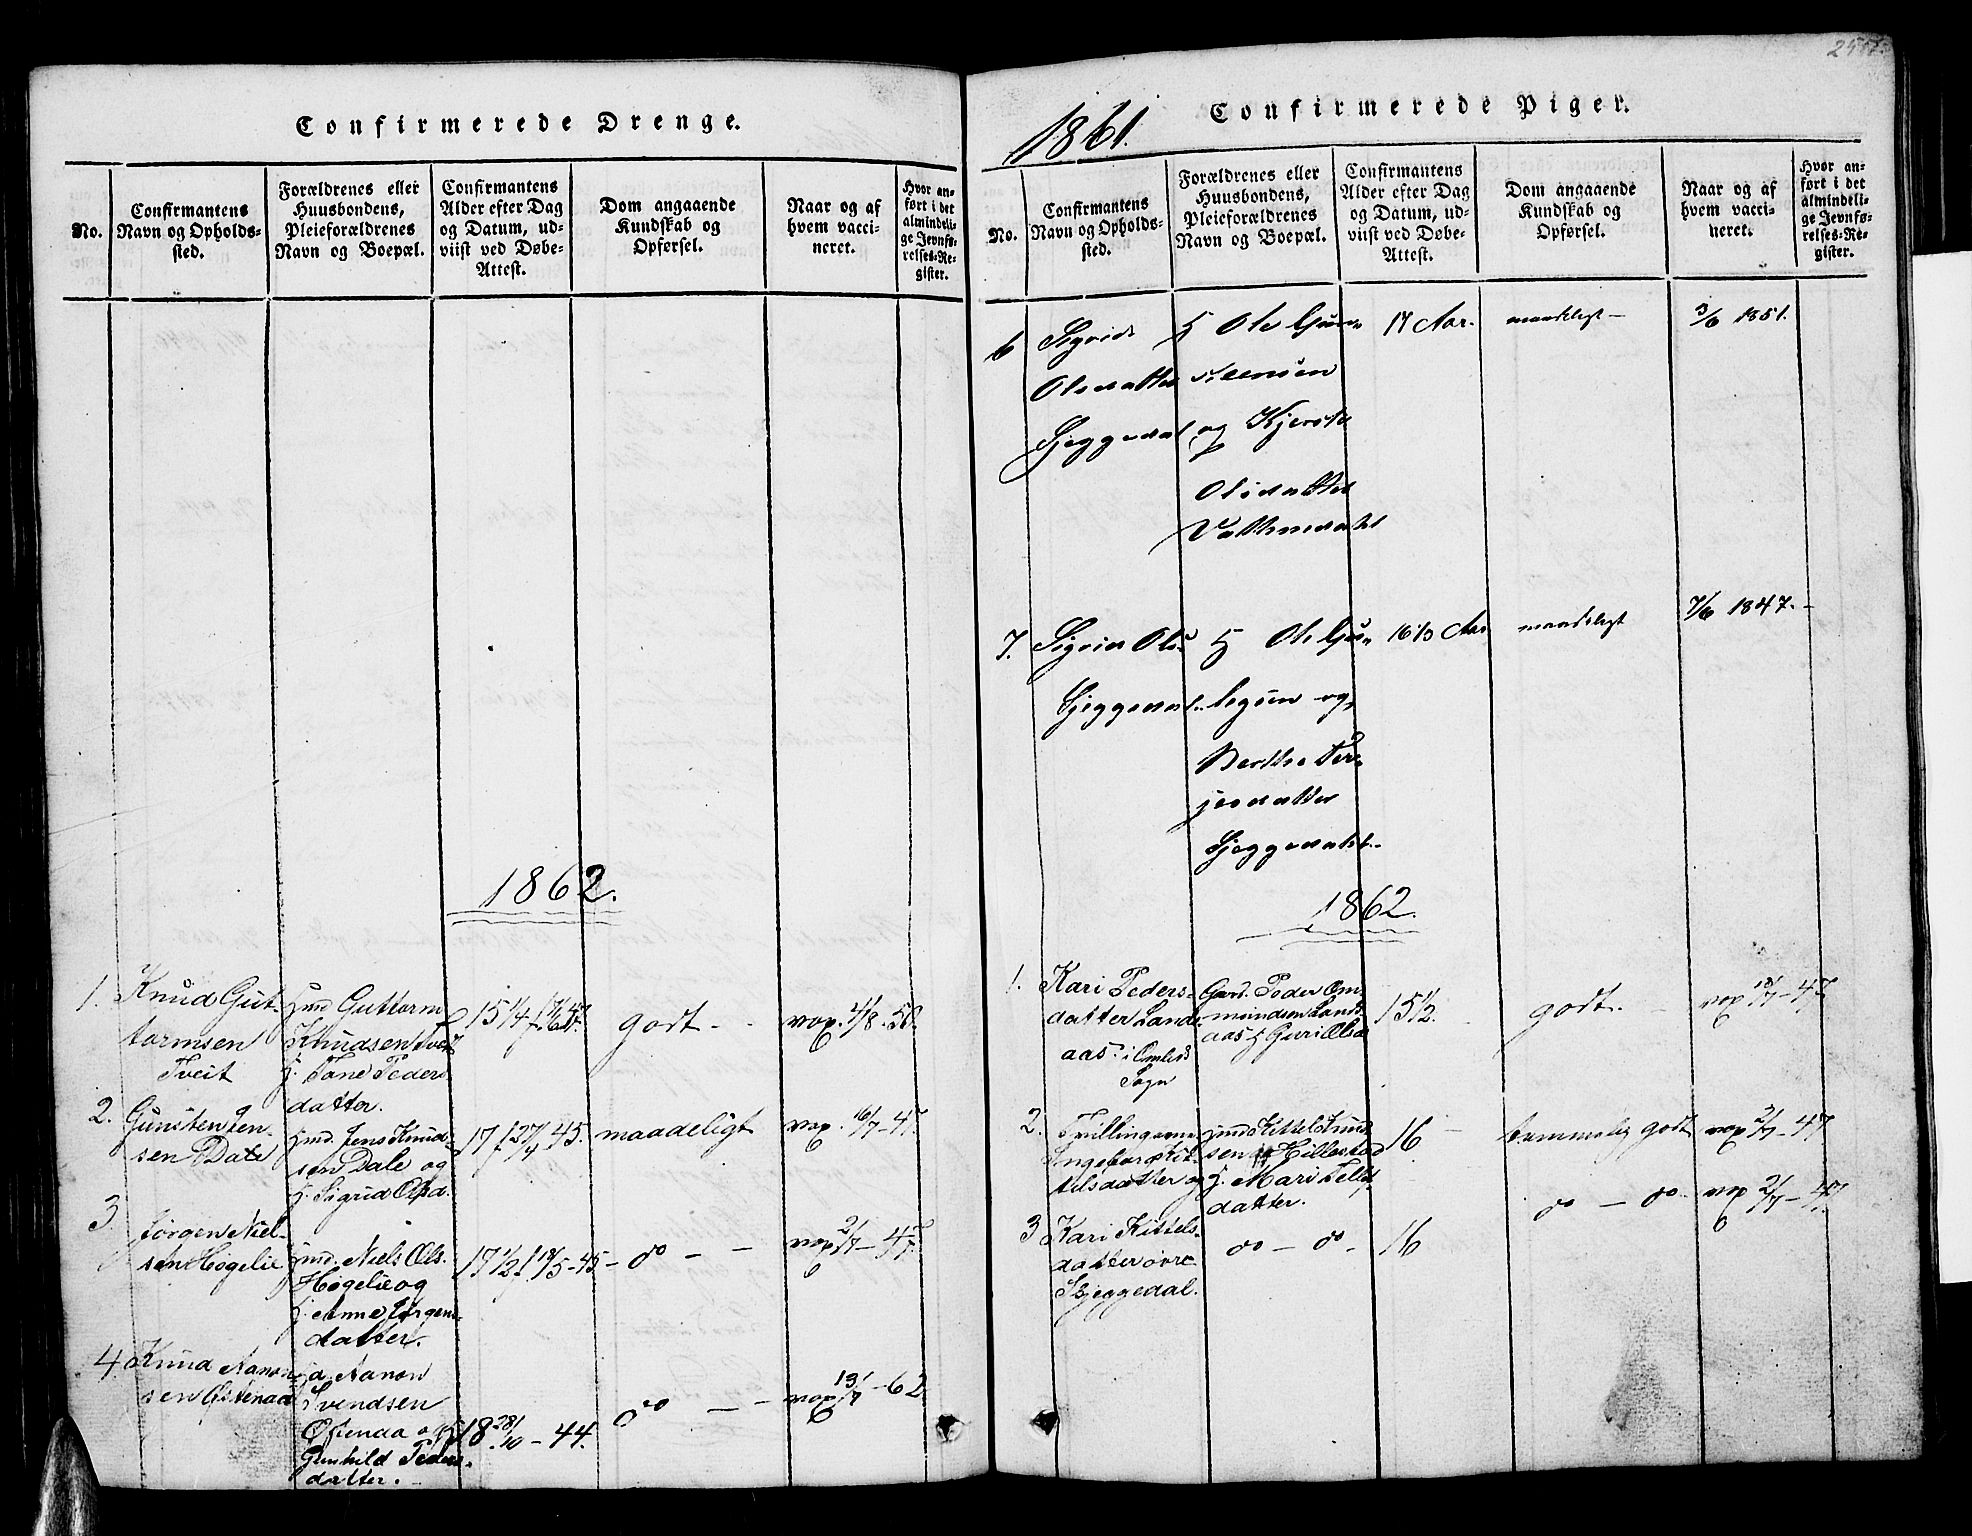 Confirmerede Drenge.
No.
Confirmantens
Navn og Opholds-
sted.
Forældrenes eller
Huusbondens,
Pleieforældrenes
Navn og Boepæl.
Confirmantens
Alder efter Dag
og Datum, ud-
viist ved Døbe-
Attest.
Dom angaaende
Kundskab og
Opførsel.
Naar og af
hvem vacci-
neret.
Hvor an-
ført i det
almindeli-
ge Jevnfø-
relses-Re-
gister.
1862.
1. Knud Gut-
tormsen
Tveit
Guttorm
Knudsen Tveit
Tone Peders
datter.
15 1/4
godt
vax.
2. Gunsten Jen-
sen Dale
Jens Knud-
sen Dale og
Sigrid Olsd.
17 f 27/4 45.
maadeligt
vax. 16/7 - 47.
3 Jørgen Niel-
sen Høgelie
Niels Ols.
Høgelie og
Anne Jørgens-
datter.
17 1/2 f - 45
do
vax 2/7 - 47.
4. Knud Aanon-
sen
Aanon
Svendsen
og
Gunhild Peders-
datter.
18 28/10 - 44.
do
vax 13/7 - 62
1861.
Confirmerede Piger.
No.
Confirmantens
Navn og Opholds-
sted.
Forældrenes eller
Huusbondens,
Pleieforældrenes
Navn og Boepæl.
Confirmantens
Alder efter Dag
og Datum, ud-
viist ved Døbe-
Attest.
Dom angaaende
Kundskab og
Opførsel.
Naar og af
hvem vacci-
neret.
Hvor an-
ført i det
almindeli-
ge Jevnfø-
relses-Re-
gister.
6 Sigrid
Olsdatter
Sjeggedal
Ole
og Kjersti
Olsdatter
17 Aar.
maadeligt -
3/6 1851.
7. Sigrid Ols
Sjeggedal
Ole
og
Berthe Ter-
jesdatter
Sjeggedahl.
Aar
maadeligt
7/6 1847. -
1862.
1. Kari Peders-
datter Lands-
aas i Omlids
Sogn
Gard. Peder Om-
mundsen Lands
aas Guri Olsd
15 1/2.
godt.
vax - 47.
2. Tvillingerne
Ingeborg Kit-
tilsdatter og
Kittel
sen Hillestad
Mari
datter.
16
temmelig godt
vax 2/7 - 47
3 Kari Kittels-
datter øvre
Skjeggedal.
do - do -
16
do - do.
vax 2/7 - 47.